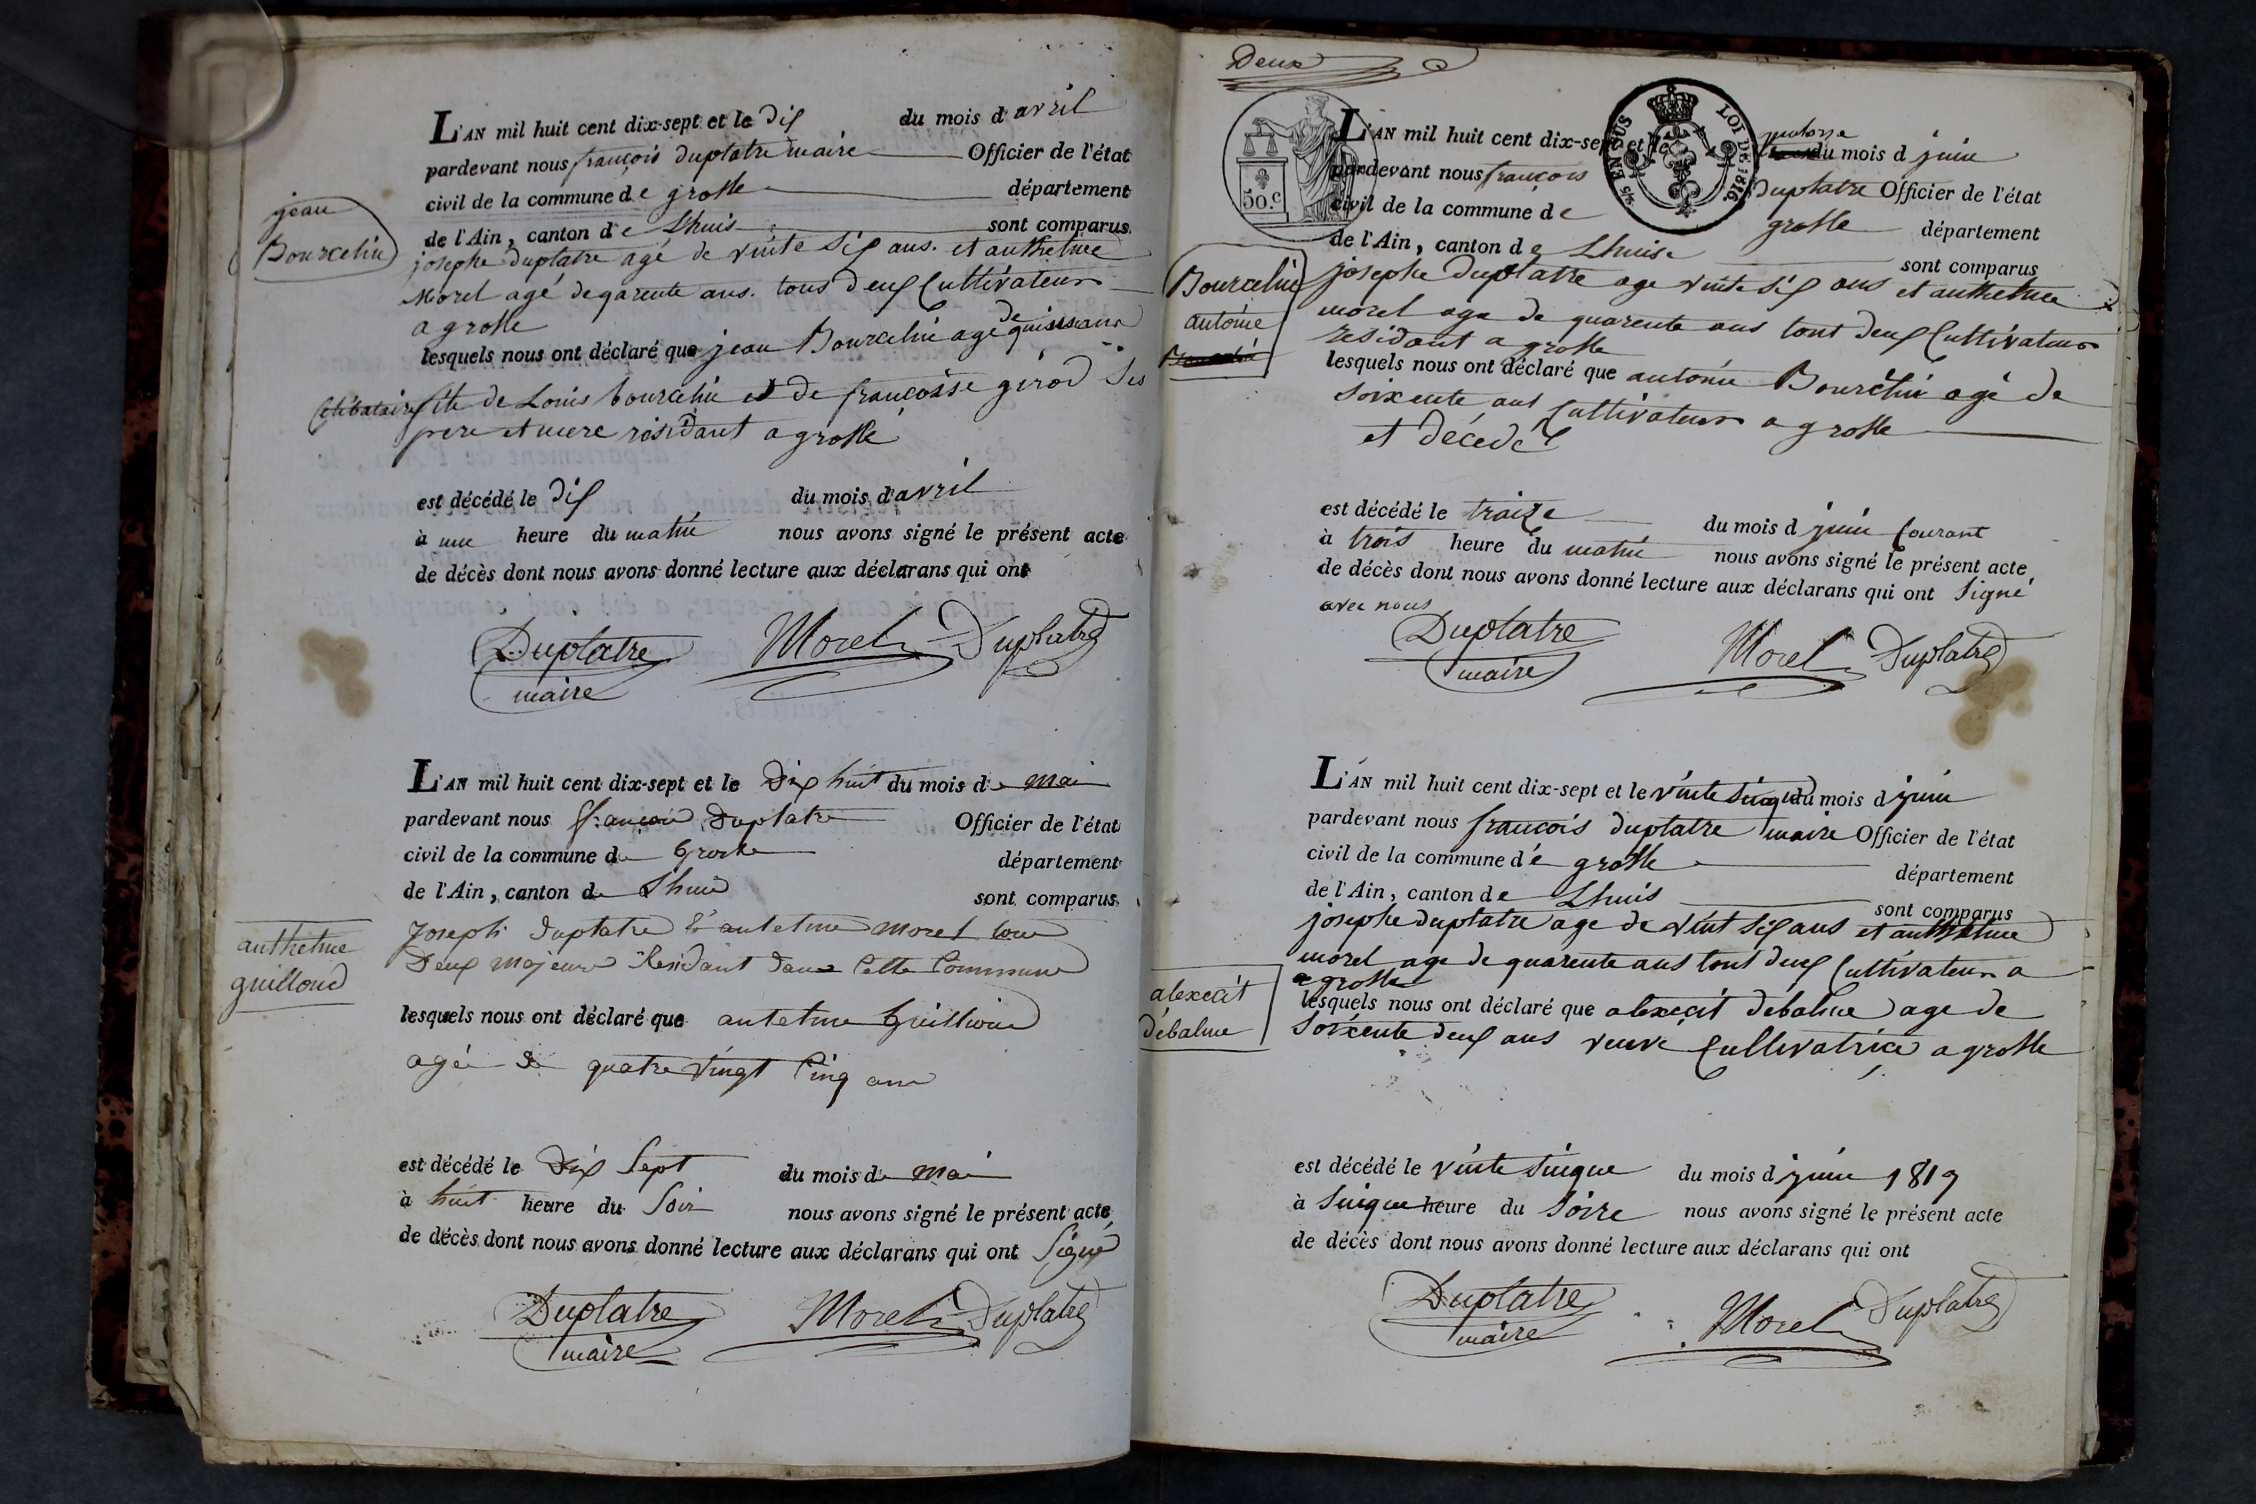 L'AN mil huit cent dix-sept et le dix du mois d'avril
pardevant nous françois duplatre maire Officier de l'état
civil de la commune de groslle département
de l'Ain, canton de Lhuis sont comparus
jean
Bourcelin
josephe duplatre agé de vinte six ans. et anthelme
Morel agé de qarente ans. tous deux Cultivateurs
a groslle
lesquels nous ont déclaré que jean Bourcelin agé de quisse ans
Célibataire fils de Louis bourcelin et de françoisse girod ses
pere et mere résidant a groslle
est décédé le dix du mois d'avril
à une heure du matin nous avons signé le présent acte
de décès dont nous avons donné lecture aux déclarans qui ont
Duplatre Morel Duplatre
maire
L'AN mil huit cent dix-sept et le Dix huit du mois de Mai
pardevant nous françois Duplatre Officier de l'état
civil de la commune de département
de l'Ain, canton de Lhuis sont comparus
anthelme
guilloud
Joseph Duplatre & antelme Morel tous
Deux Majeurs Résidant dans Cette Commune
lesquels nous ont déclaré que antelme
agé de quatre vingt Cinq ans
est décédé le Dix Sept du mois de Mai
à huit heure du Soir nous avons signé le présent acte
de décès dont nous avons donné lecture aux déclarans qui ont Signé
Duplatre Morel Duplatre
maire
Deux
50.C
LOI DE 1816
EN SUS
L'AN mil huit cent dix-sept et le quatorze du mois d juin
pardevant nous françois Duplatre Officier de l'état
civil de la commune de groslle département
de l'Ain, canton de Lhuise sont comparus
Bourcelin
antoine
josephe Duplatre age vinte six ans et anthelme
morel age de quarente ans tout deux Cultivateurs
residant a groslle
lesquels nous ont déclaré que antonie Bourcelin agé de
soixente ans Cultivateur a groslle
et décédé
est décédé le traize du mois d juin Courant
à trois heure du matin nous avons signé le présent acte
de décès dont nous avons donné lecture aux déclarans qui ont Signé
avec nous
Duplatre Morel Duplatre
maire
L'AN mil huit cent dix-sept et le vinte sinque du mois d juin
pardevant nous françois duplatre maire Officier de l'état
civil de la commune dé groslle département
de l'Ain, canton de Lhuis sont comparus
josephe duplatre age de vint six ans et anthelme
morel age de quarente ans tout deux Cultivateurs a
groslle
alexcit
débalme
lesquels nous ont déclaré que alexcit débalme age de
soixente deux ans veuve Cultivatrice a groslle
est décédé le vinte sinque du mois d juin 1817
à sinque heure du soire nous avons signé le présent acte
de décès dont nous avons donné lecture aux déclarans qui ont
Duplatre Morel Duplatre
maire